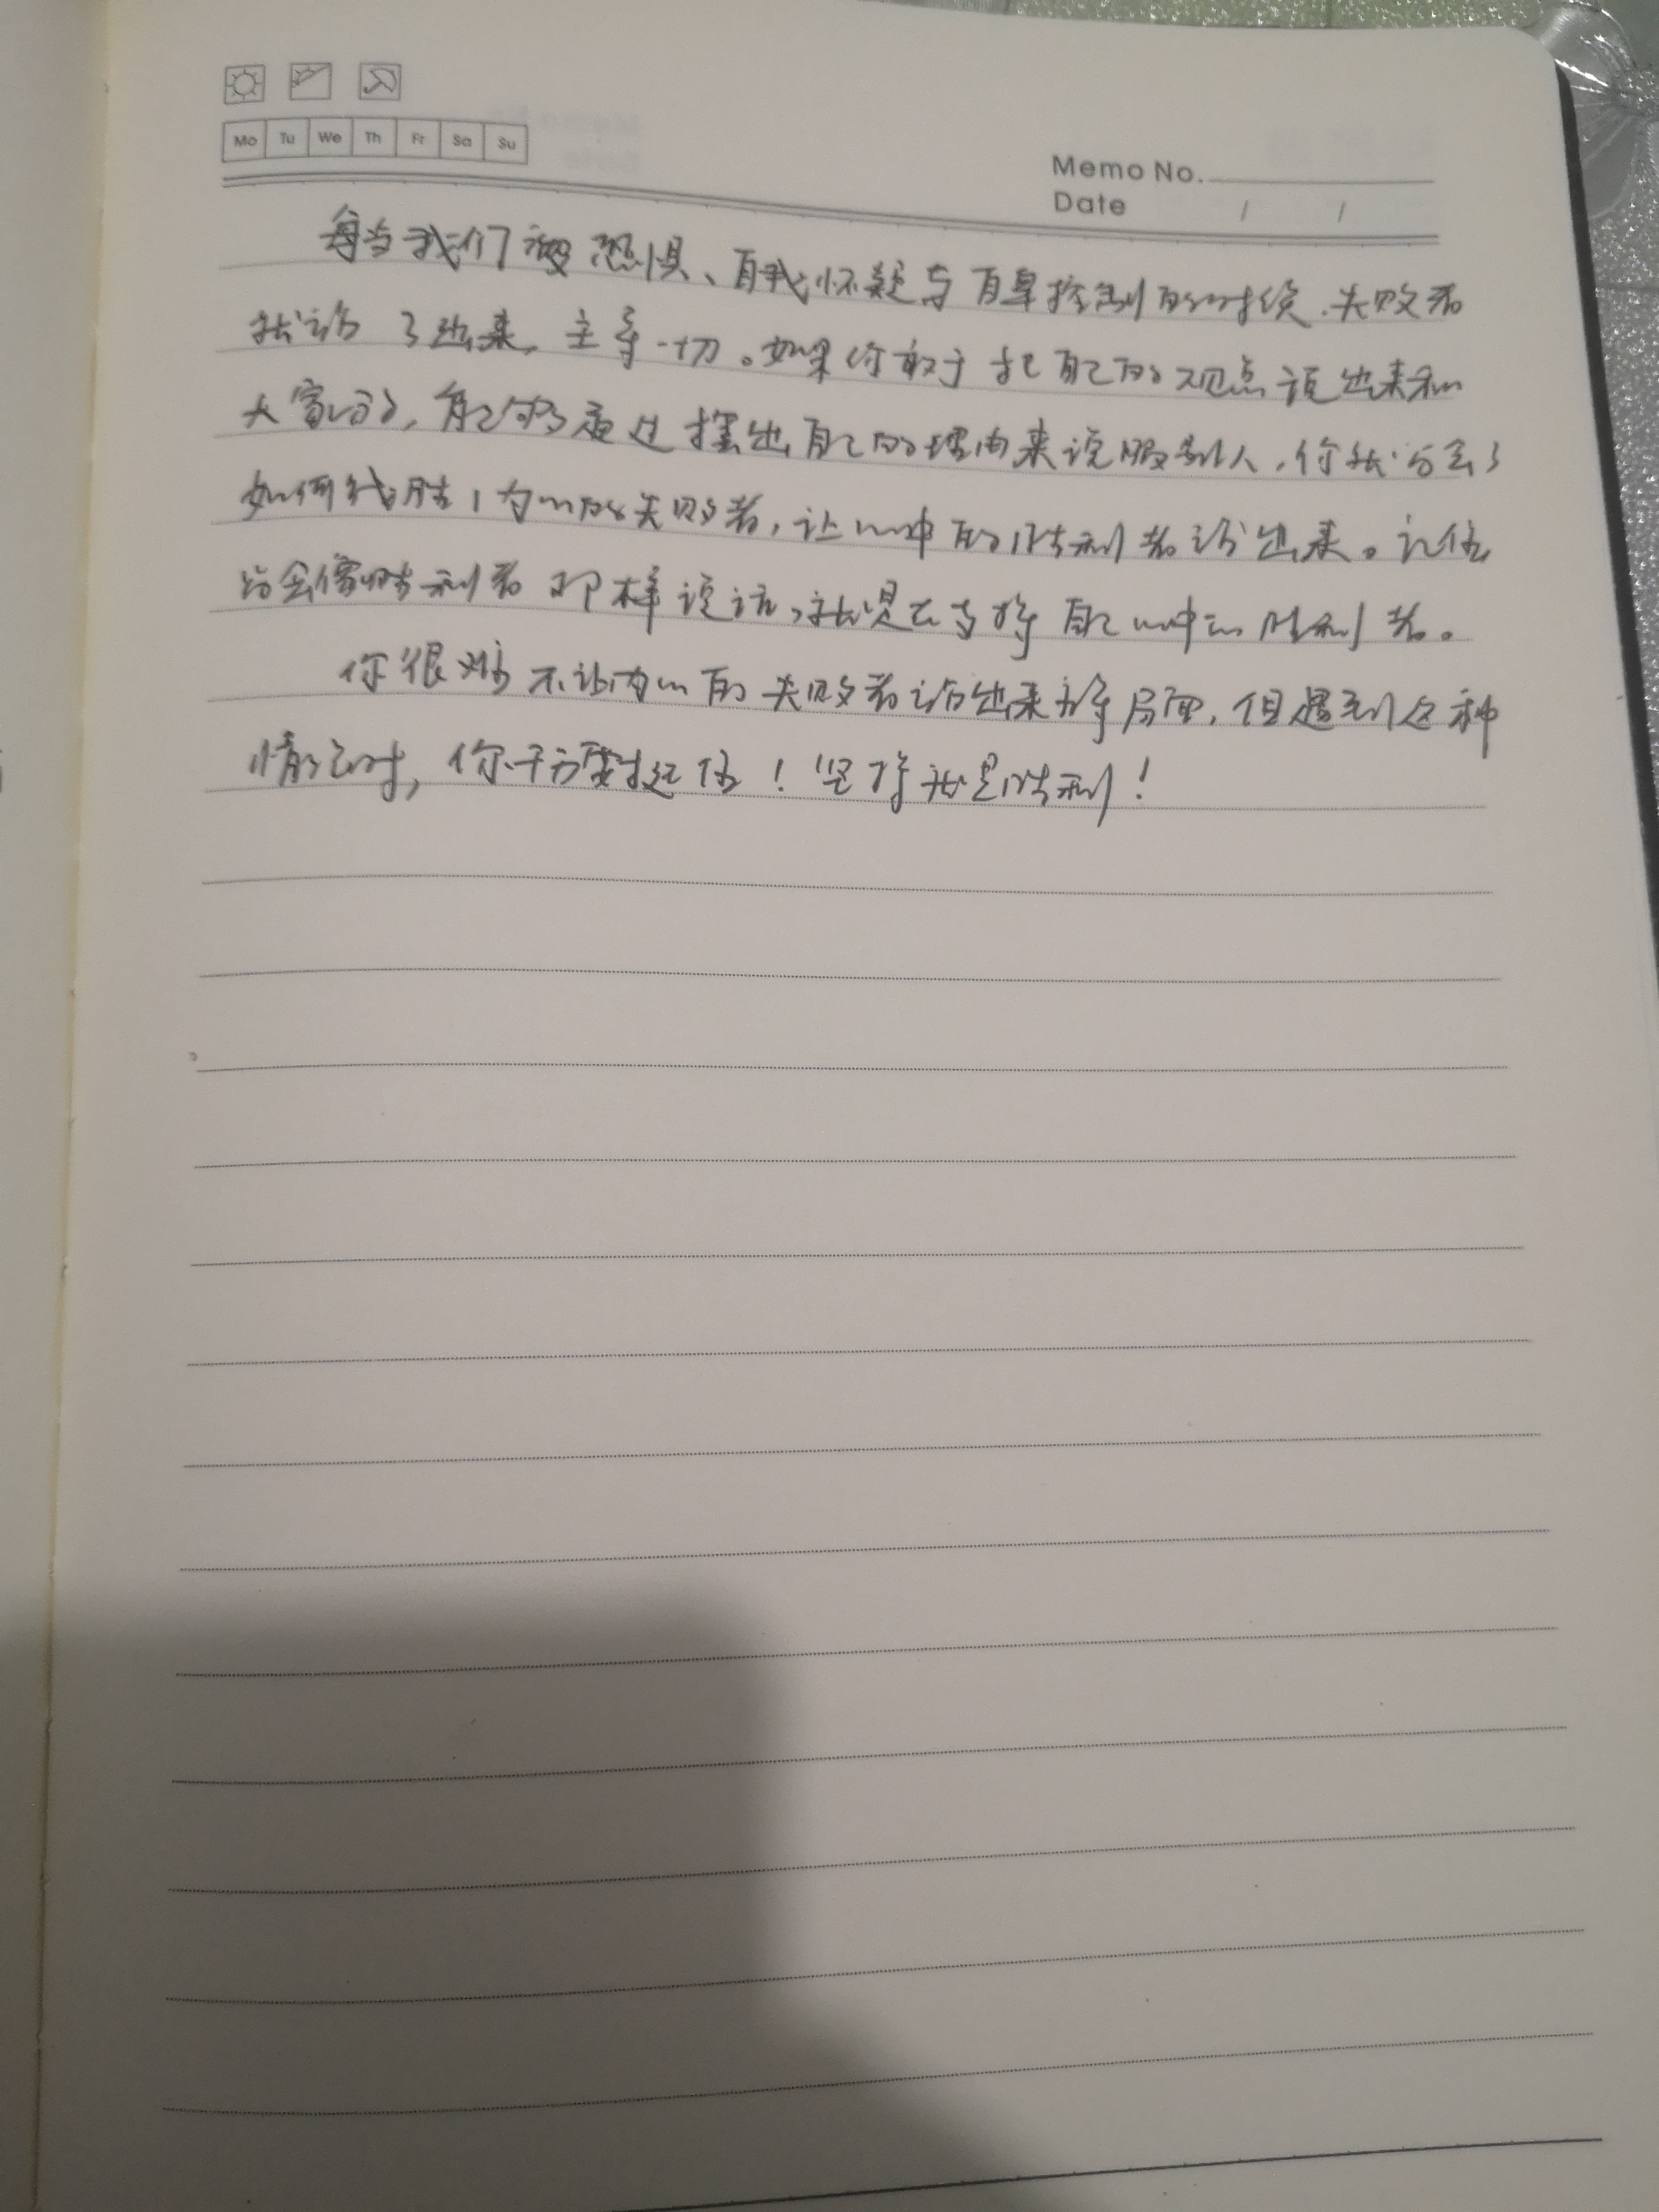 Mo Tu We Th Fr Sa Su
Memo No.
Date / /
每当我们被恐惧、自我怀疑与自卑控制的时候,失败者
就站了出来,主导一切。如果你敢于把自己的观点说出来和
大家分享,能够通过摆出自己的理由来说服别人,你就学会了
如何战胜内心的失败者,让心中的胜利者站出来。记住
学会像胜利者那样说话,就是在支持自己心中的胜利者。
你很难不让内心的失败者站出来主导局面,但遇到这种
情况时,你千万要挺住!坚持就是胜利!